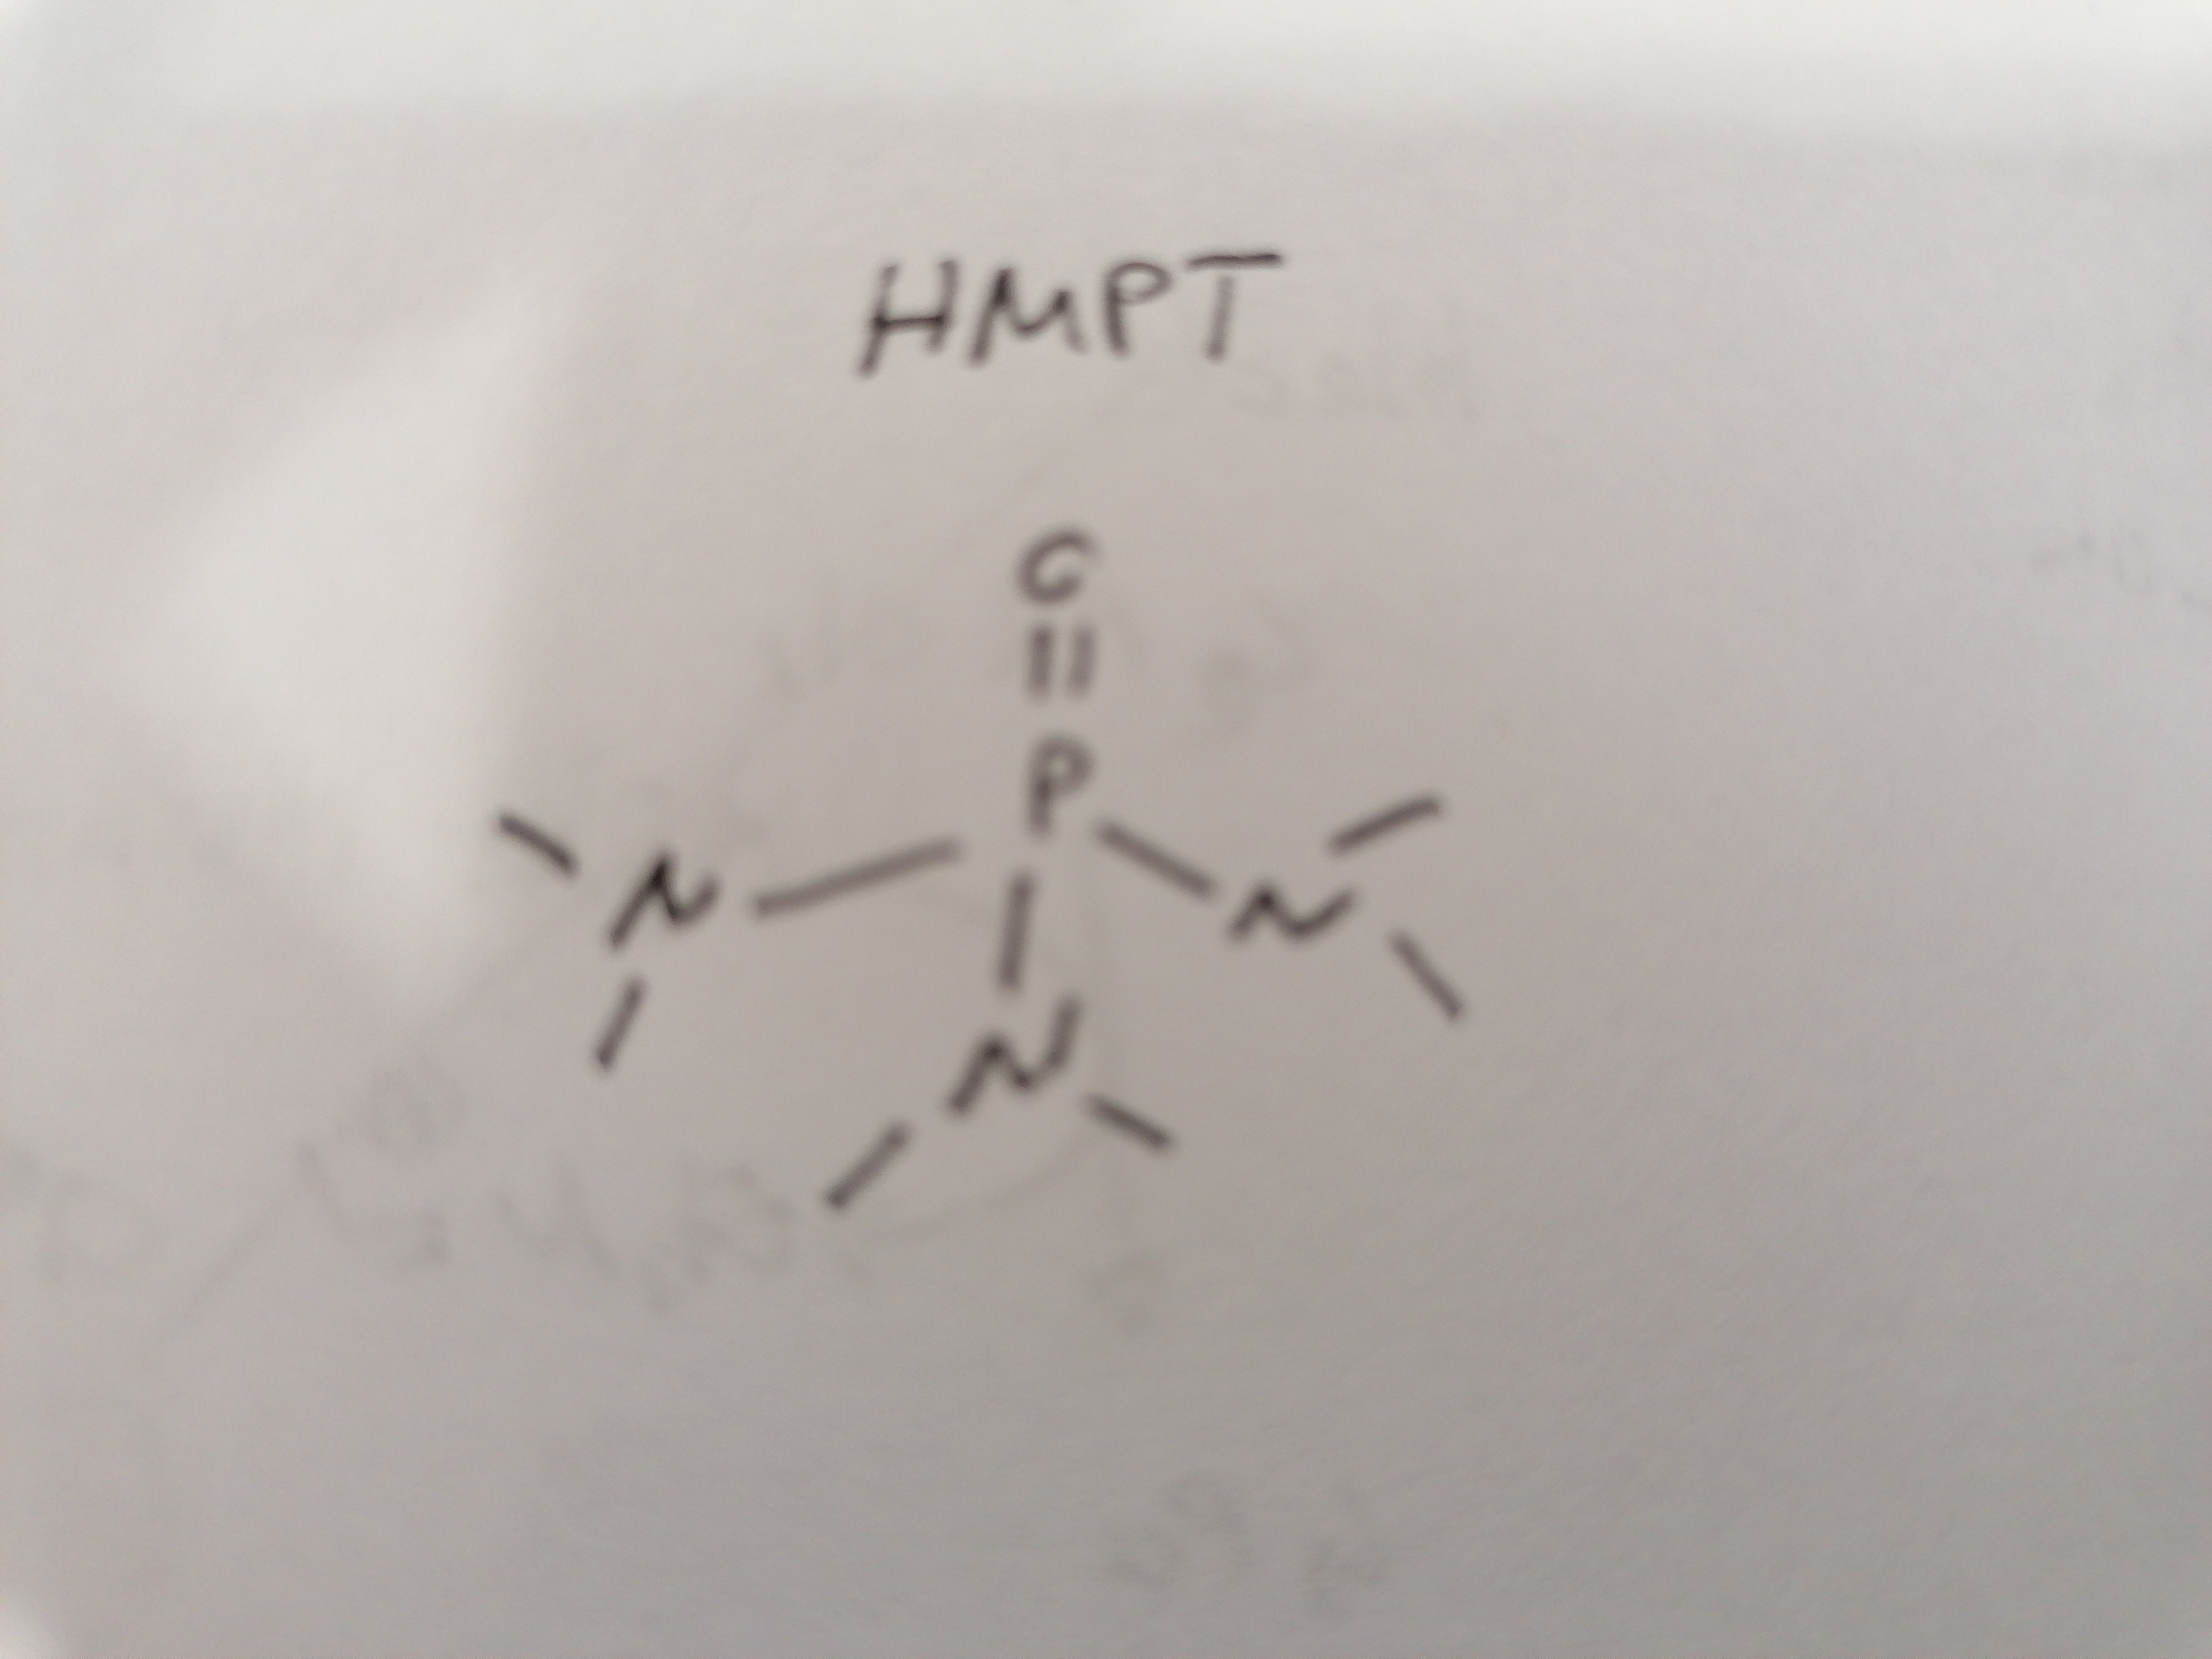 HMPT
O
P
N N
N